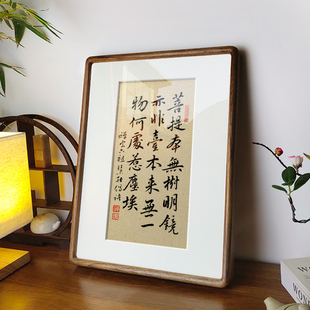 菩提本無樹明鏡
亦非臺本來無一
物何處惹塵埃
禪宗六祖